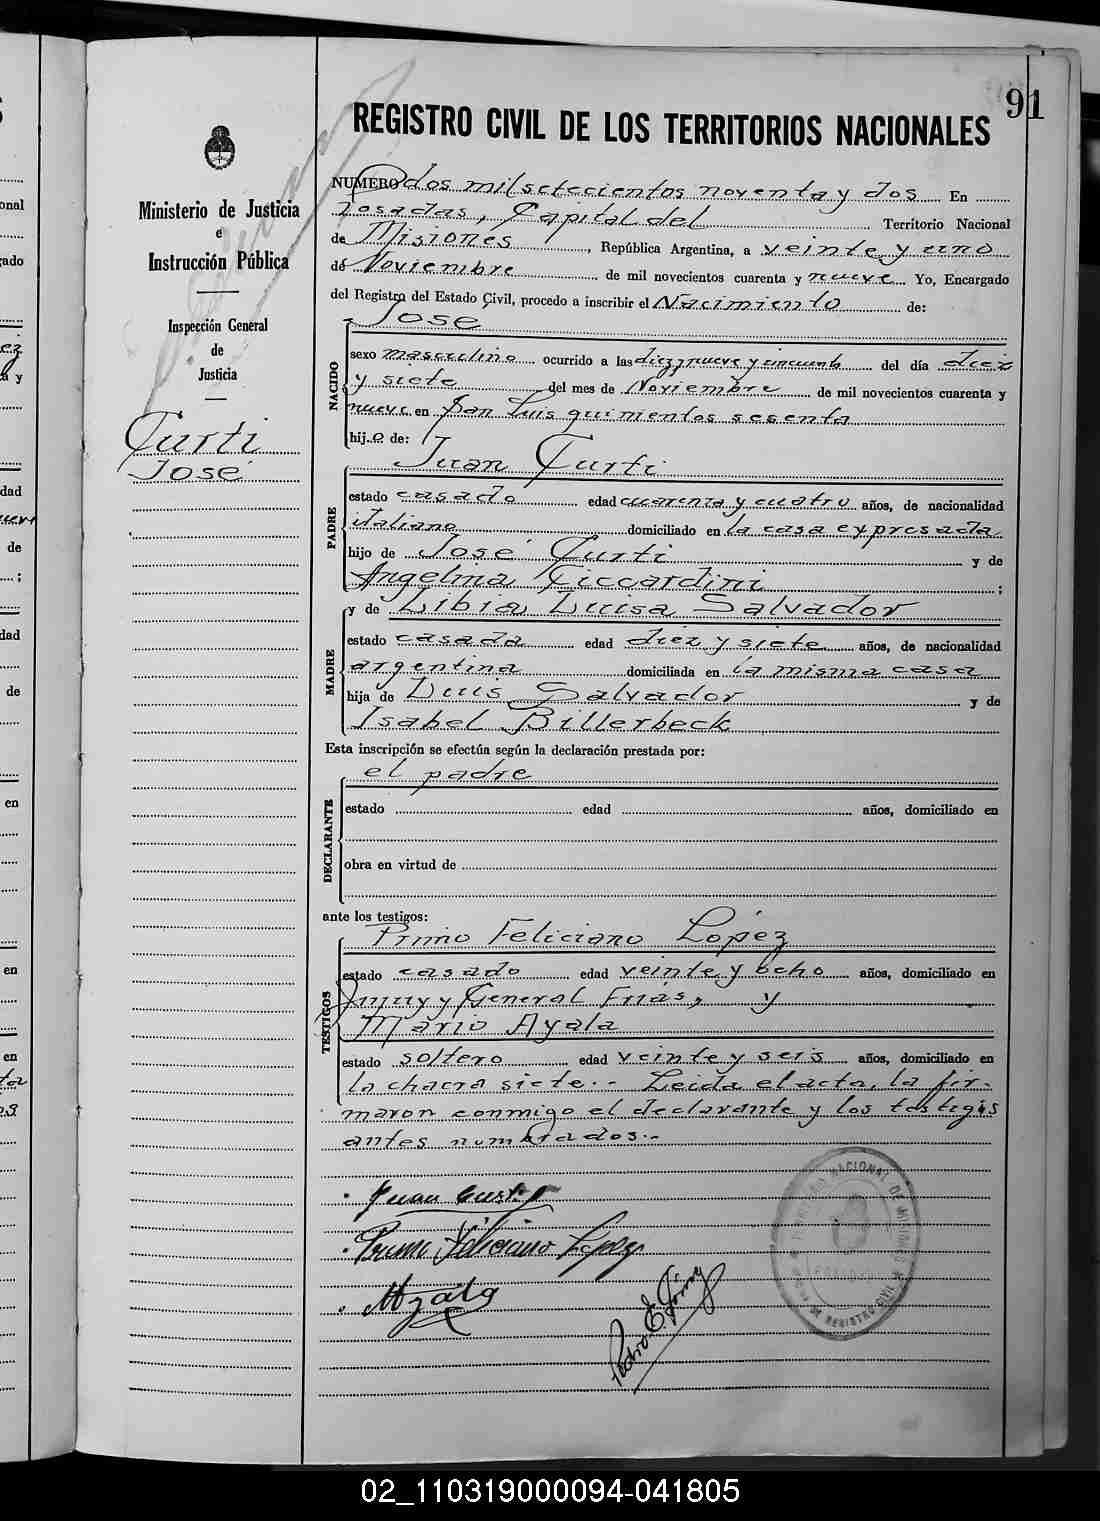 91
REGISTRO CIVIL DE LOS TERRITORIOS NACIONALES
Ministerio de Justicia
e
Instrucción Pública
Inspección General
de
Justicia
Curti
José
NUMERO dos mil setecientos noventa y dos En
Posadas, Capital del Territorio Nacional
de Misiones, República Argentina, a veinte y uno
de Noviembre de mil novecientos cuarenta y nueve Yo, Encargado
del Registro del Estado Civil, procedo a inscribir el Nacimiento de:
José
NACIDO
sexo masculino ocurrido a las diez y nueve y cincuenta del día diez
y siete del mes de Noviembre de mil novecientos cuarenta y
nueve en San Luis quinientos sesenta
hij.o de:
Juan Curti
PADRE
estado casado edad cuarenta y cuatro años, de nacionalidad
italiano domiciliado en la casa expresada
hijo de José Curti y de
Angelina Ciccardini ;
y de Libia Luisa Salvador
MADRE
estado casada edad diez y siete años, de nacionalidad
argentina domiciliada en la misma casa
hija de Luis Salvador y de
Isabel Billerbeck
Esta inscripción se efectúa según la declaración prestada por:
el padre
DECLARANTE
estado edad años, domiciliado en
obra en virtud de
ante los testigos:
Primo Feliciano López
TESTIGOS
estado casado edad veinte y ocho años, domiciliado en
Jujuy y General Frías, y
Mario Ayala
estado soltero edad veinte y seis años, domiciliado en
la chacra siete.- Leída el acta, la fir-
maron conmigo el declarante y los testigos
antes nombrados.-
Juan Curti
Primo Feliciano López
MAyala
TERRITORIO NACIONAL DE MISIONES
DE REGISTRO CIVIL
02_110319000094-041805